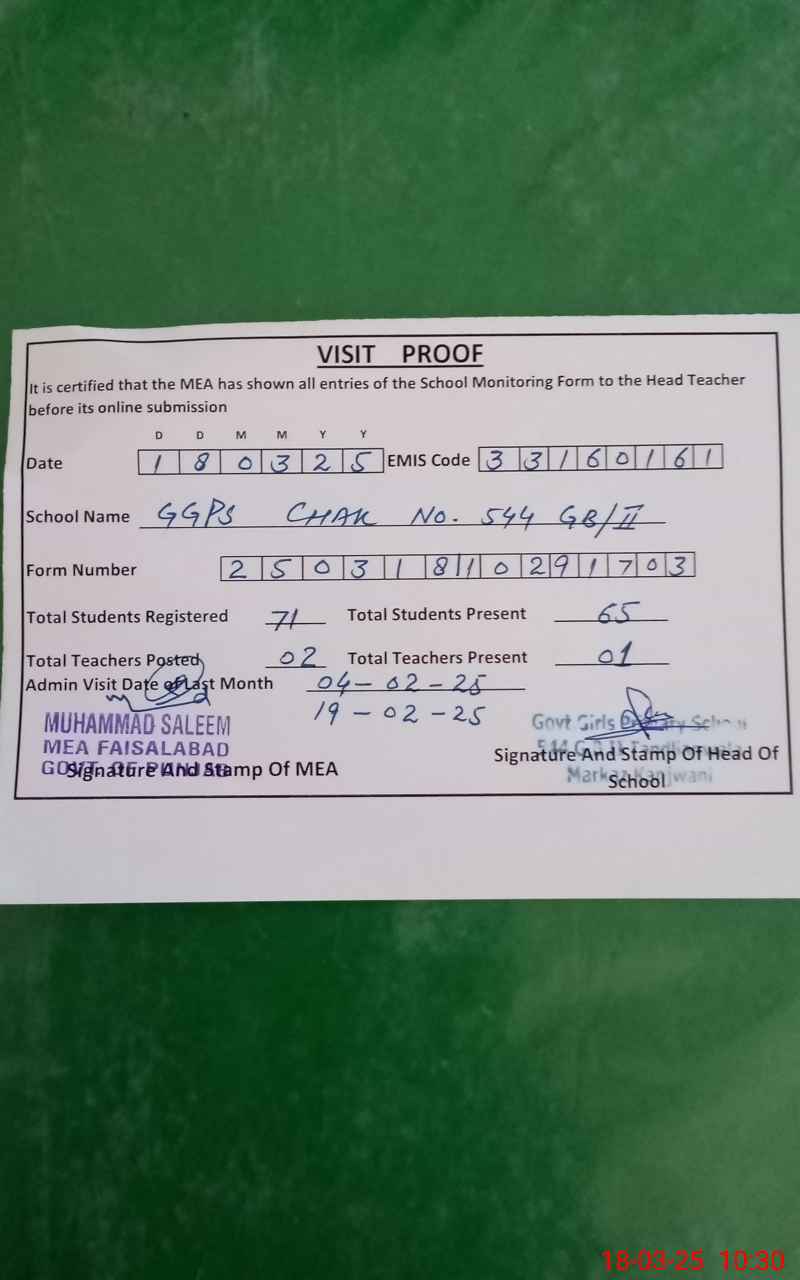 VISIT PROOF
It is certified that the MEA has shown all entries of the School Monitoring Form to the Head Teacher
before its online submission
D D M M Y Y
Date 1 8 0 3 2 5 EMIS Code 3 3 1 6 0 1 6 1
School Name GGPS CHAK NO. 544 GB/II
Form Number 2 5 0 3 1 8 1 0 2 9 1 7 0 3
Total Students Registered 71 Total Students Present 65
Total Teachers Posted 02 Total Teachers Present 01
Admin Visit Date of Last Month 04-02-25
19-02-25
MUHAMMAD SALEEM
MEA FAISALABAD
GOVT. OF PUNJAB
Signature And Stamp Of MEA
Govt Girls Primary School
Signature And Stamp Of Head Of
School
Markaz Kanjwani
18-03-25 10:30